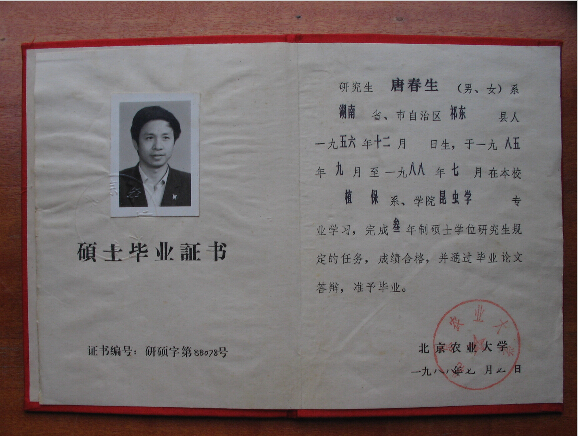 硕士毕业証书
证书编号：研硕字第88078号
研究生 唐春生 （男、女）系
湖南 省、市自治区 祁东 县人
一九五六年十二月 日生，于一九八五
年九月至一九八八年七月在本校
植保 系、学院 昆虫学 专
业学习，完成叁年制硕士学位研究生规
定的任务，成绩合格，并通过毕业论文
答辩，准予毕业。
北京农业大学
一九八八年七月 日